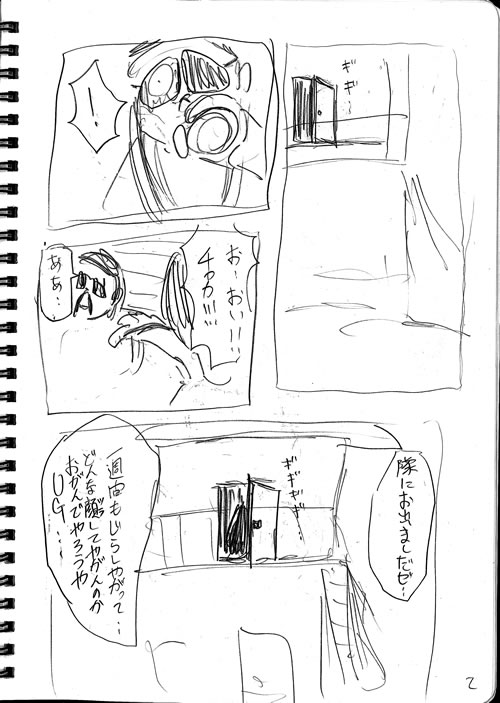 ギギ…
!
お〜おい!!
チカ!!!
ああ…
隊にお出ましだぜ…
ギギギギ…
一週間もじらしやがって…
どんな顔してやがんのか
おがんでやろうや
UG…
2